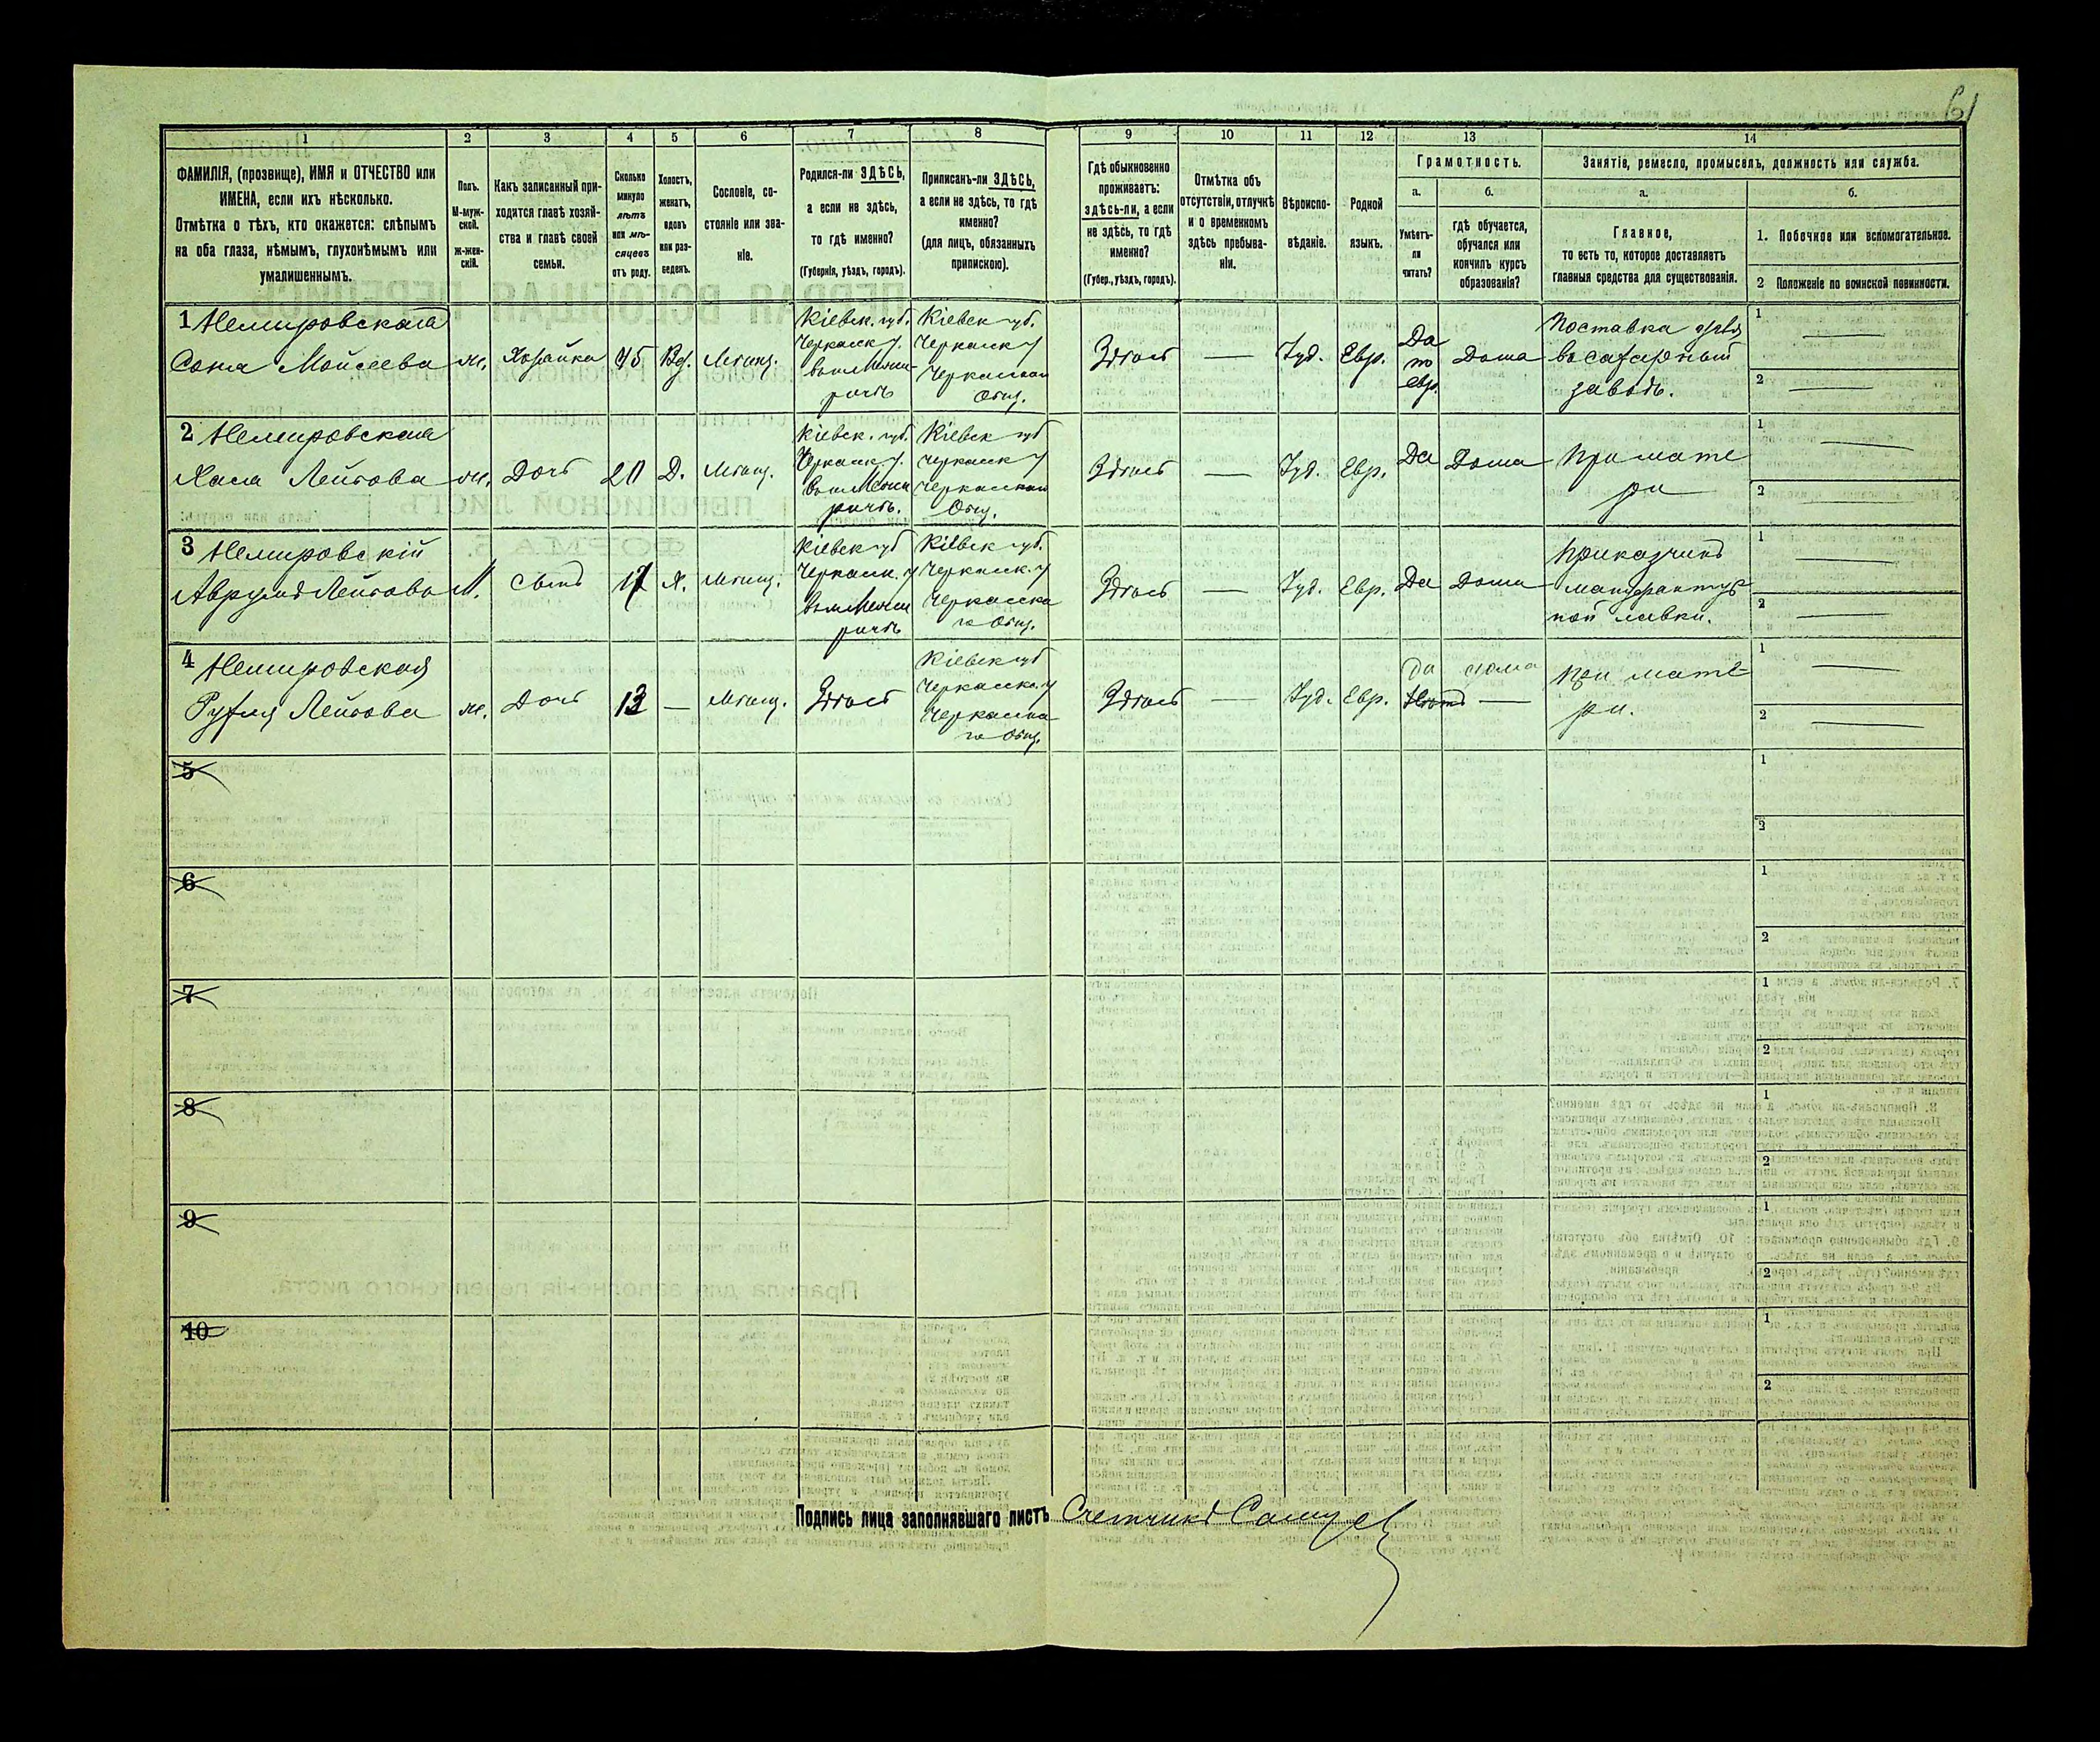 61
1 2 3 4 5 6 7 8 9 10 11 12 13 14
ФАМИЛІЯ, (прозвище), ИМЯ и ОТЧЕСТВО или
ИМЕНА, если ихъ нѣсколько.
Отмѣтка о тѣхъ, кто окажется: слѣпымъ
на оба глаза, нѣмымъ, глухонѣмымъ или
умалишеннымъ.
Полъ.
М-муж-
ской.
ж-жен-
скій.
Какъ записанный при-
ходится главѣ хозяй-
ства и главѣ своей
семьи.
Сколько
минуло
лѣтъ
или мѣ-
сяцевъ
отъ роду.
Холостъ,
женатъ,
вдовъ
или раз-
веденъ.
Сословіе, со-
стояніе или зва-
ніе.
Родился-ли ЗДѢСЬ,
а если не здѣсь,
то гдѣ именно?
(Губернія, уѣздъ, городъ).
Приписанъ-ли ЗДѢСЬ,
а если не здѣсь, то гдѣ
именно?
(для лицъ, обязанныхъ
припискою).
Гдѣ обыкновенно
проживаетъ:
здѣсь-ли, а если
не здѣсь, то гдѣ
именно?
(Губер., уѣздъ, городъ).
Отмѣтка объ
отсутствіи, отлучкѣ
и о временномъ
здѣсь пребыва-
ніи.
Вѣроиспо-
вѣданіе.
Родной
языкъ.
Грамотность.
а.
Умѣетъ-
ли
читать?
б.
гдѣ обучается,
обучался или
кончилъ курсъ
образованія?
Занятіе, ремесло, промыселъ, должность или служба.
а.
Главное,
то есть то, которое доставляетъ
главныя средства для существованія.
б.
1. Побочное или вспомогательное.
2 Положеніе по воинской повинности.
1 Немировская
Соня Мойсеева
ж.
Хозяйка
45
Вд.
Мѣщ.
Кіевск. губ.
Черкаск у.
ричѣ
Кіевск губ.
Черкаск у
Общ.
Здѣсь
—
Іуд.
Евр.
Да
по
евр.
Дома
Поставка
заводъ.
1 —
2 —
2 Немировская
Хася Лейбова
ж.
Дочь
20
Д.
Мѣщ.
Кіевск. губ.
Черкаск у.
ричѣ.
Кіевск губ
Черкаск у
Общ.
Здѣсь
—
Іуд.
Евр.
Да
Дома
При мате
ри
1 —
2 —
3 Немировскій
Аврумъ Лейбовъ
М.
Сынъ
17
Х.
Мѣщ.
Кіевск губ
Черкаск. у
ричѣ
Кіевск губ.
Черкаск. у
Черкаска
го Общ.
Здѣсь
—
Іуд.
Евр.
Да
Дома
Приказчикъ
мануфактур
ной лавки.
1 —
2 —
4 Немировская
Рухля Лейбова
ж.
Дочь
13
—
Мѣщ.
Здѣсь
Кіевск губ
Черкаск. у
Черкаска
го Общ.
Здѣсь
—
Іуд.
Евр.
Да
Нѣтъ
дома
—
При мате-
ри.
1 —
2 —
5
1
2
6
1
2
7
1
2
8
1
2
9
1
2
10
1
2
Подпись лица заполнявшаго листъ Счетчикъ